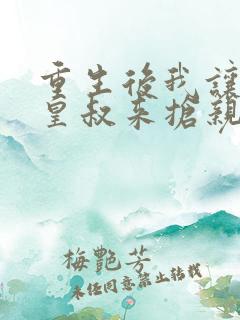 重生後我讓
皇叔來搶親
梅艷芳
未任同意禁止转载